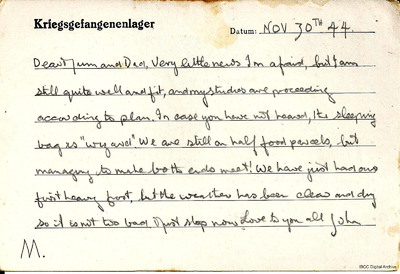 Kriegsgefangenenlager
Datum: NOV 30TH 44.
Dear Mum and Dad, Very little news I'm afraid, but I am
still quite well and fit, and my studies are proceeding
according to plan. In case you have not heard, the sleeping
bag is "wizard". We are still on half food parcels, but
managing to make both ends meet! We have just had our
first heavy frost, but the weather has been clear and dry
so it is not too bad. Must stop now. Love to you all John
M.
IBCC Digital Archive